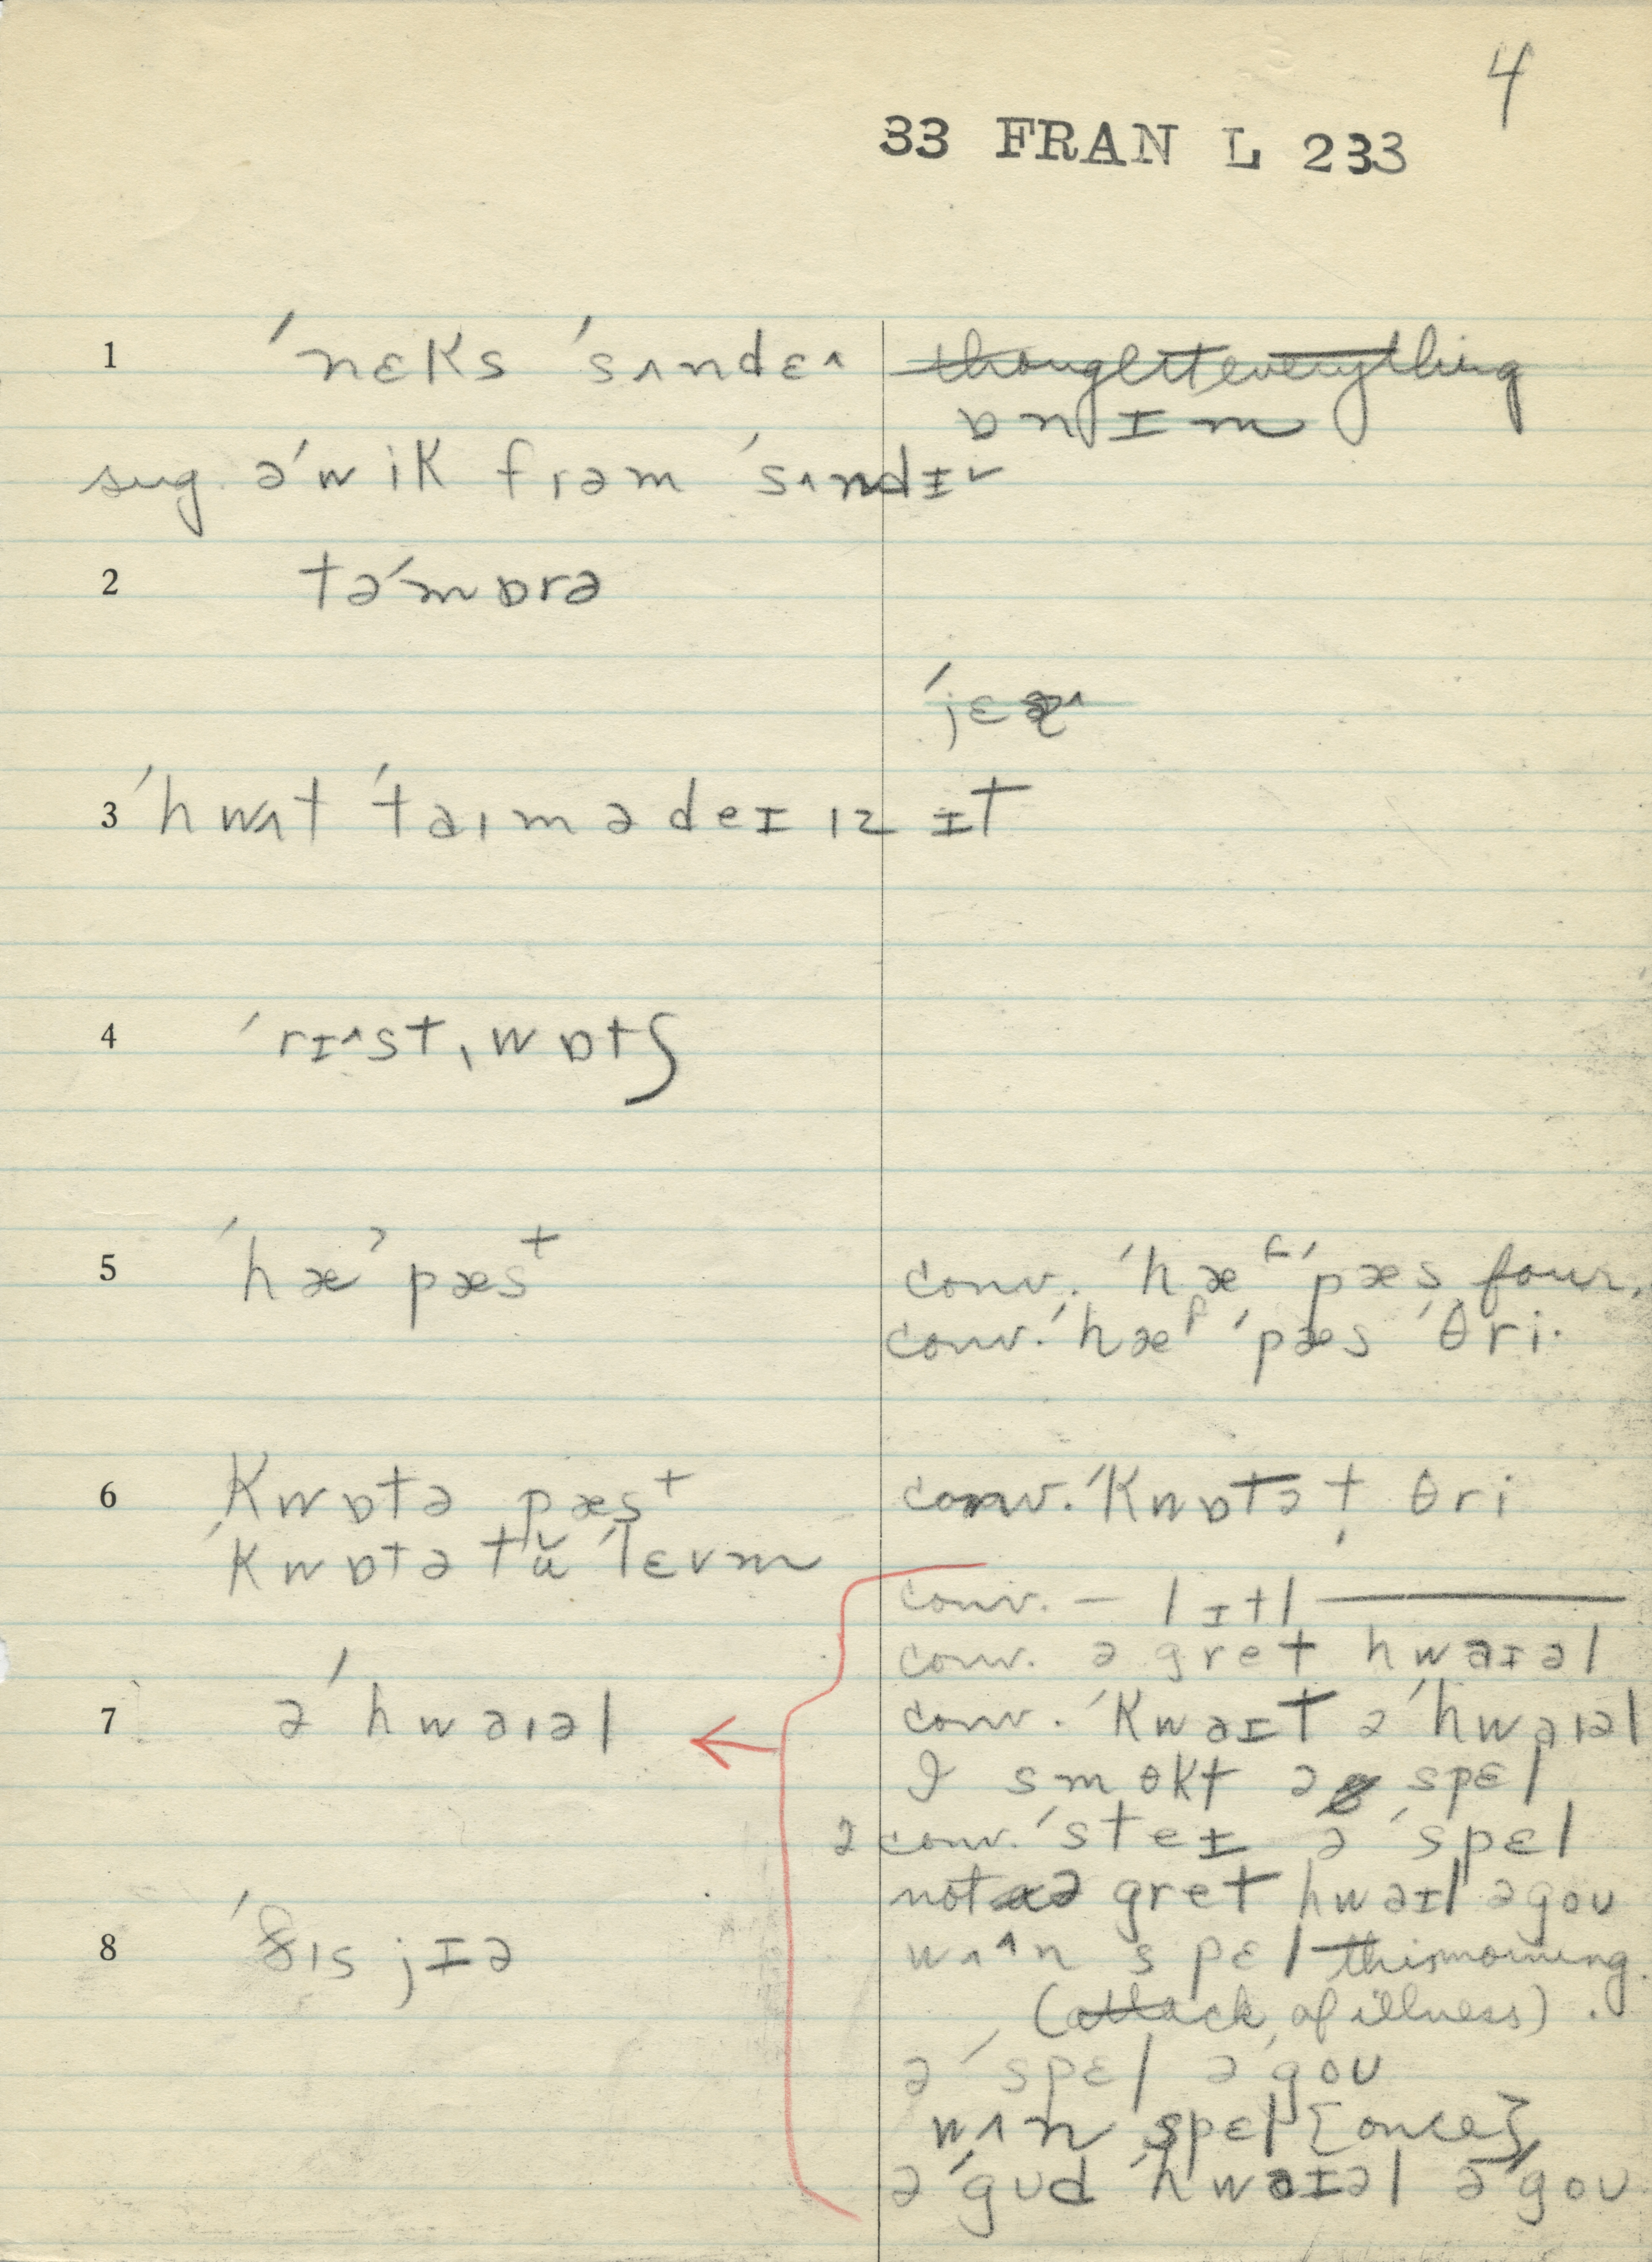 4
33 FRAN L 233
1 ˈnɛks ˈsʌndɛ˄
thought everything
ɒn ɪm
sug. əˈwik frəm ˈsʌndɪ˅
2 təˈmɒrə
ˈjɛ
3 ˈhwʌt ˈtaɪm ə deɪ ɪz ɪt
4 ˈrɪ˄stˌwɒtʃ
5 ˈhæˀ pæsᵗ
conv. ˈhæᶠ ˈpæs four.
conv. ˈhæᶠ ˈpæs ˈθri.
6 ˈkwɒtə pæsᵗ
conv. ˈkwɒtə t θri
ˈkwɒtə tŭ ˈlɛvm
conv. — lɪtl —
conv. ə gret hwaɪəl
7 əˈhwaɪəl
conv. ˈkwaɪt əˈhwaɪəl
I smɵkt ə spɛl
2 conv. ˈsteɪ əˈspɛl
not ə gret hwəɪl əgoʊ
8 ˈðɪs jɪə
wʌ˄n spɛl this morning.
(attack of illness).
əˈspɛl əˈgoʊ
wʌn spɛl {once}
əˈgʊd ˈhwaɪəl əˈgoʊ